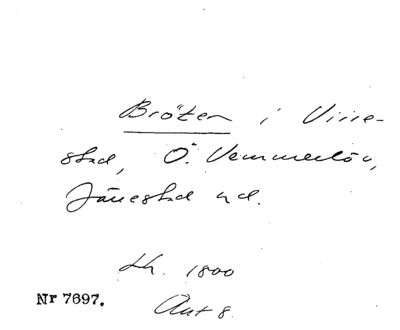 Bröten i Virre-
stad, Ö. Vemmerlöv,
Järrestad n.d.
Lh. 1800
Nr 7697.
Ant 8.